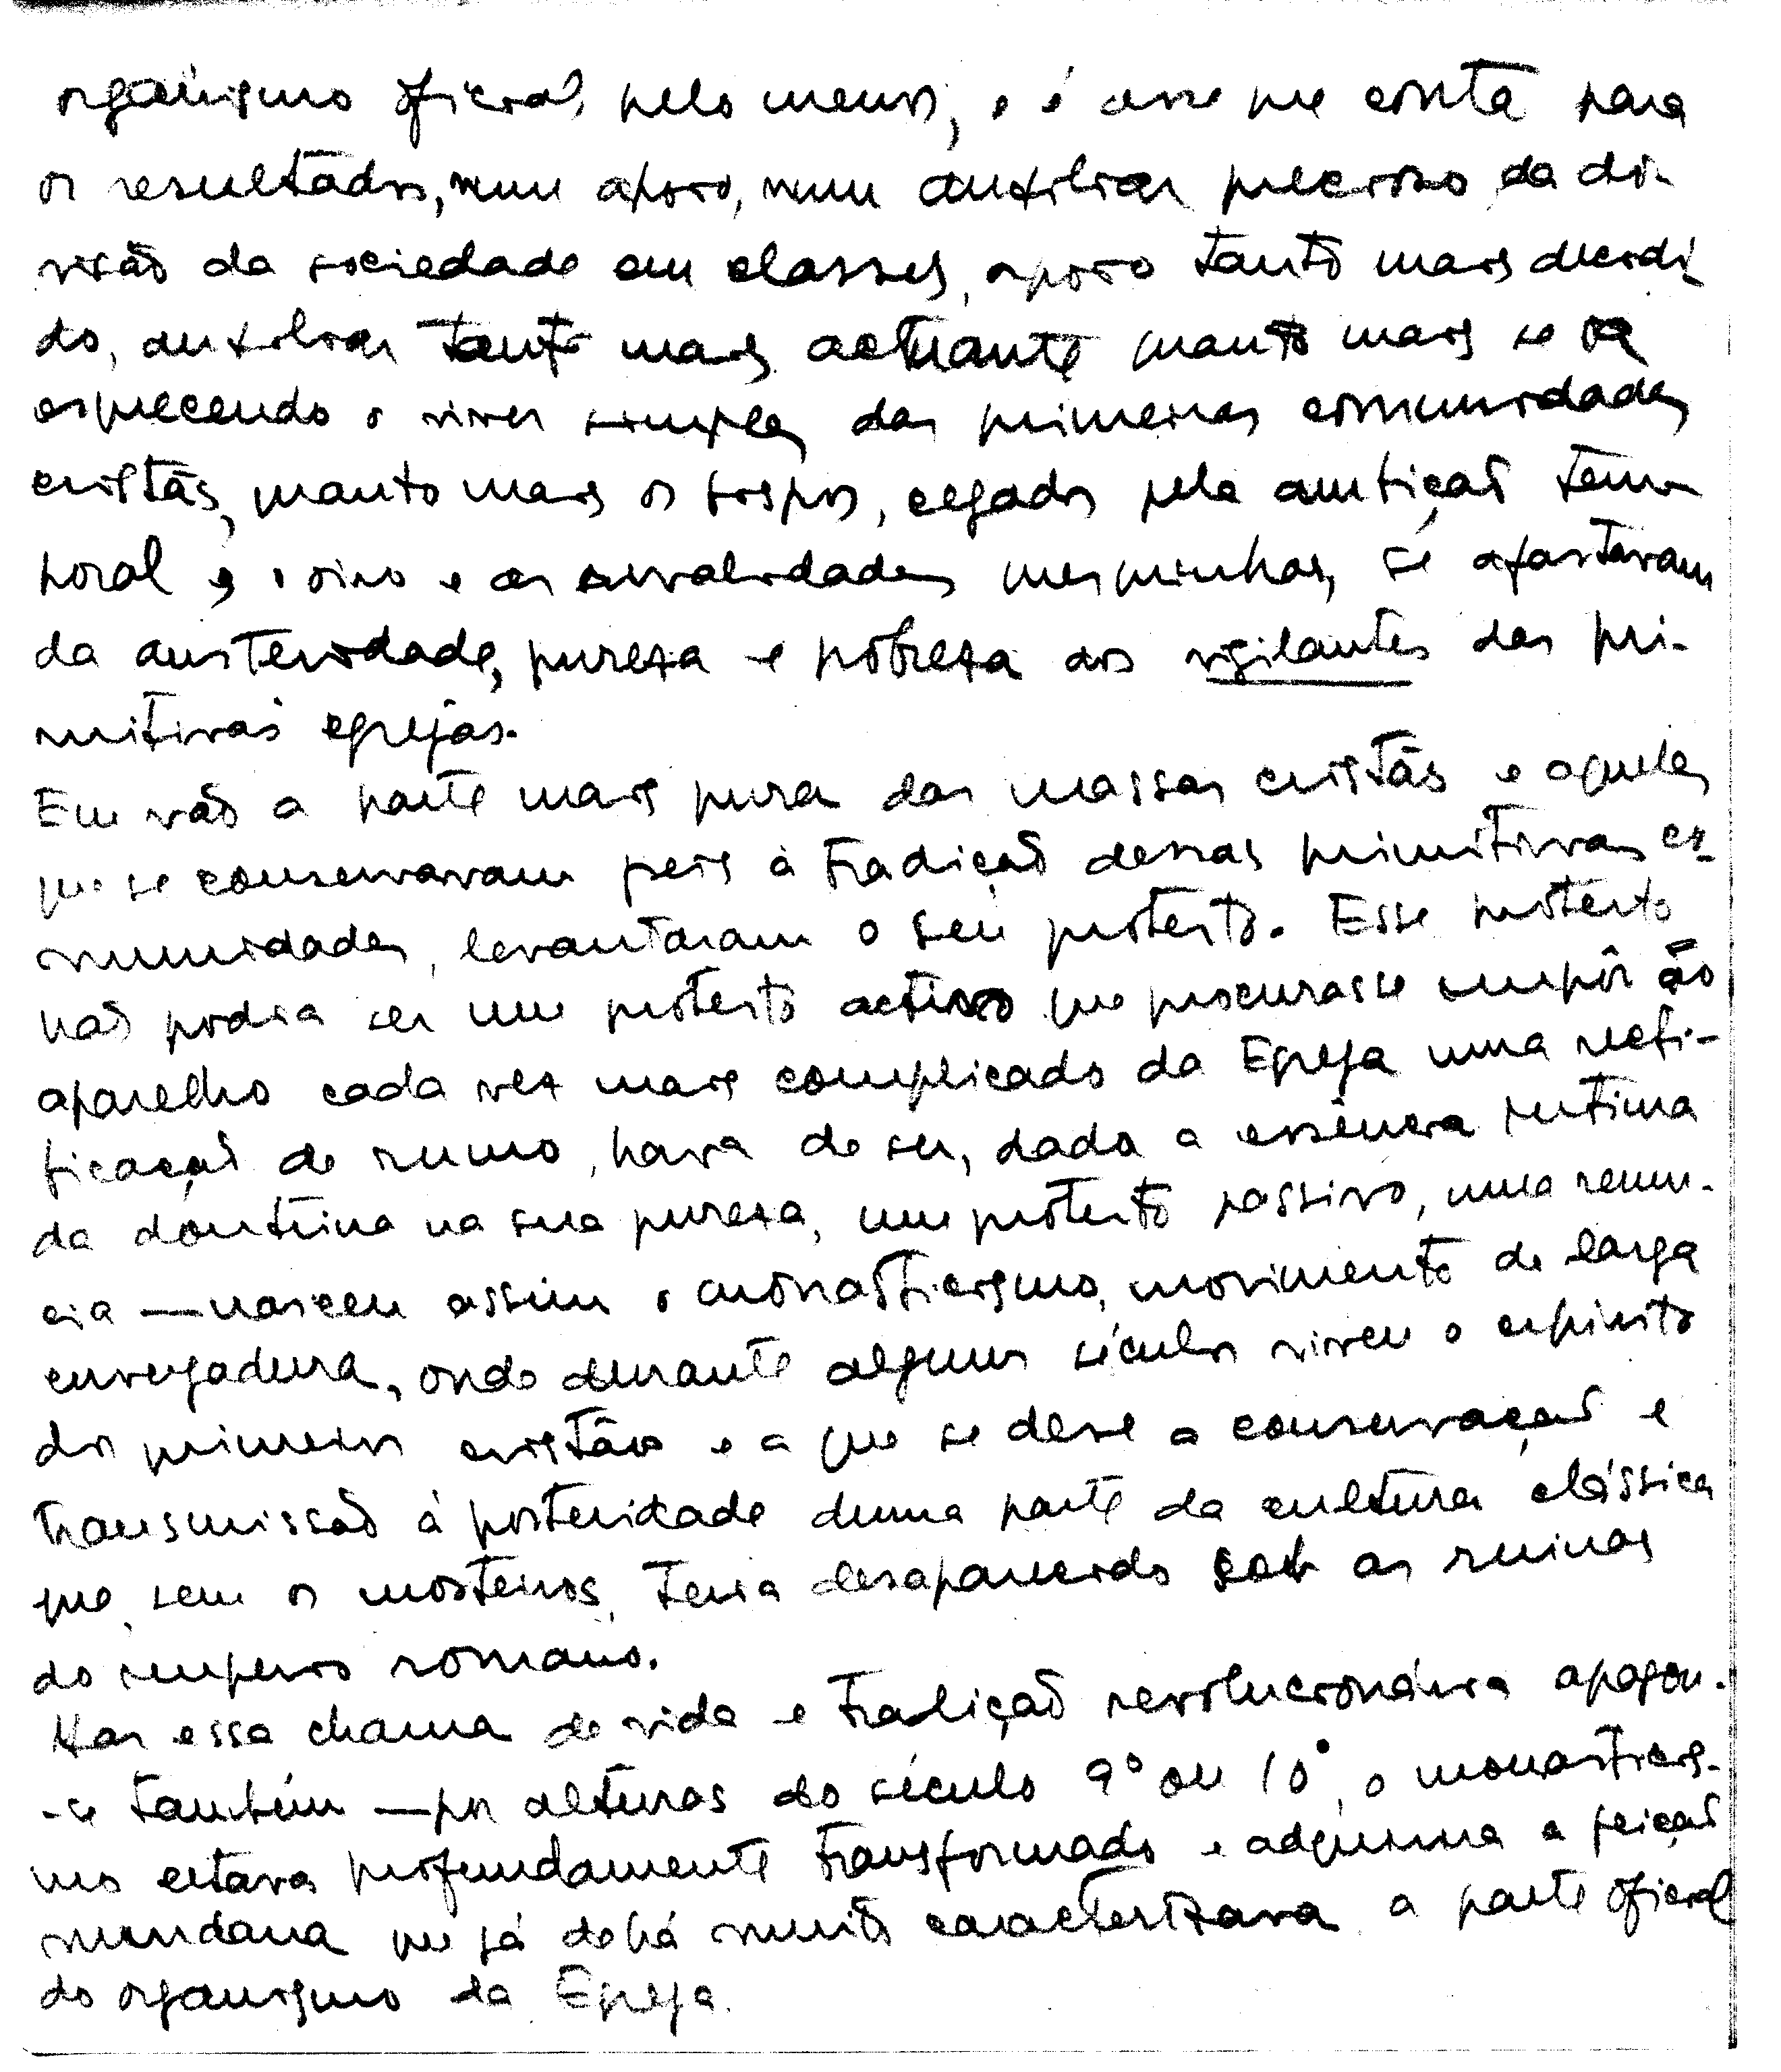 organismo oficial, pelo menos, e é esse que conta para
os resultados, num apoio, num auxiliar precioso da di-
visão da sociedade em classes, apoio tanto mais decidi
do, auxiliar tanto mais actuante quanto mais se ia
esquecendo o viver simples das primeiras comunidades
cristãs, quanto mais os bispos, cegados pela ambição tem-
poral e o oiro e as rivalidades mesquinhas, se afastavam
da austeridade, pureza e pobreza dos vigilantes das pri-
mitivas egrejas.
Em vão a parte mais pura das massas cristãs e aqueles
que se conservavam fieis à tradição dessas primitivas co-
munidades, levantaram o seu protesto. Esse protesto
não podia ser um protesto activo que procurasse impôr ao
aparelho cada vez mais complicado da Egreja uma recti-
ficação de rumo, havia de ser, dada a essência íntima
da doutrina na sua pureza, um protesto passivo, uma renun-
cia — nasceu assim o monasticismo, movimento de larga
envergadura, onde durante alguns séculos viveu o espirito
dos primeiros cristãos e a que se deve a conservação e
transmissão à posteridade duma parte da cultura clássica
que, sem os mosteiros, teria desaparecido sob as ruinas
do imperio romano.
Mas essa chama de vida e tradição revolucionária apagou-
-se também — por alturas do século 9º ou 10º, o monasticis-
mo estava profundamente transformado e adquirira a feição
mundana que já de há muito caracterizava a parte oficial
do organismo da Egreja.